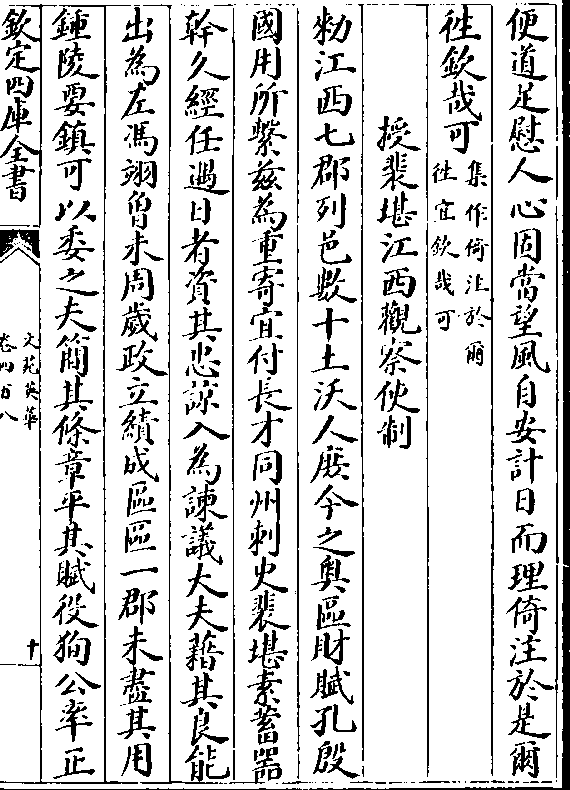 便道足慰人心固當望風自安計日而理倚注於是爾
徃欽哉可集作倚注於爾
徃宜欽哉可
授裴堪江西觀察使制
勑江西七郡列邑數十土沃人庶今之奥區財賦孔殷
國用所繫兹為重寄宜付長才同州刺史裴堪素蓄器
幹久經任遇日者資其忠諒入為諫議大夫藉其良能
出為左馮翊曾未周歲政立績成區區一郡未盡其用
鍾陵要鎮可以委之夫簡其條章平其賦役狥公率正
欽定四庫全書
文苑英華
卷四百八
十